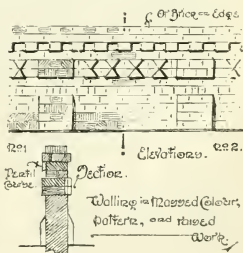 Of Brick on Edge
No. 1
Elevations.
No. 2.
Section.
Walling in Massed Colour,
Pattern, and raised
Work.